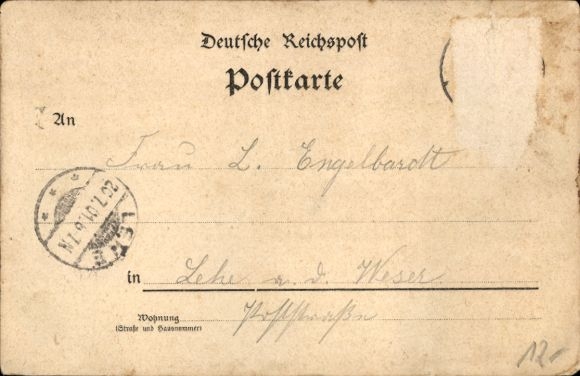 Deutsche Reichspost
Postkarte
An
Frau L. Engelbardt
LEHE
20.7.01.6-7N
in Lehe a. d. Weser
Wohnung
(Straße und Hausnummer)
Poststraße
12.-